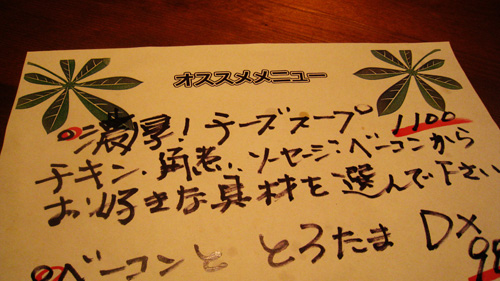 オススメメニュー
濃厚!チーズスープ 1100
チキン・角煮・ソーセージ・ベーコンから
お好きな具材を選んで下さい
ベーコンと とろたま DX